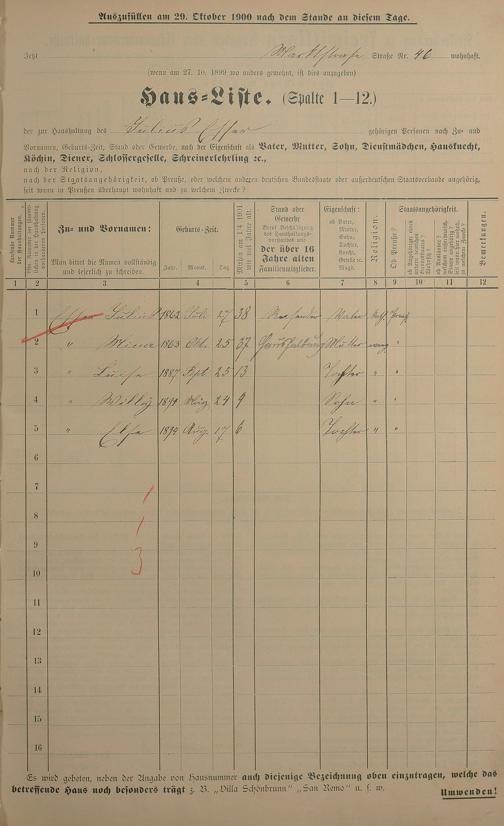 Auszufüllen am 29. Oktober 1900 nach dem Stande an diesem Tage.
Jetzt Marktstraße Straße Nr. 46 wohnhaft.
(wenn am 27. 10. 1899 wo anders gewohnt, ist dies anzugeben)
Haus-Liste. (Spalte 1—12.)
der zur Haushaltung des Julius Esser gehörigen Personen nach Zu- und
Vornamen, Geburts-Zeit, Stand oder Gewerbe, nach der Eigenschaft als Vater, Mutter, Sohn, Dienstmädchen, Hausknecht,
Köchin, Diener, Schlossergeselle, Schreinerlehrling ꝛc.,
nach der Religion,
nach der Staatsangehörigkeit, ob Preuße, oder welchem anderen deutschen Bundesstaate oder außerdeutschen Staatsverbande angehörig,
seit wann in Preußen überhaupt wohnhaft und zu welchem Zwecke?
Zu- und Vornamen:
Man bittet die Namen vollständig und leserlich zu schreiben.
Geburts-Zeit.
Jahr. Monat. Tag
Stand oder Gewerbe
der über 16 Jahre alten Familienmitglieder.
Eigenschaft:
ob Vater, Mutter, Sohn, Tochter, Knecht, Geselle, Magd.
Religion.
Staatsangehörigkeit.
Ob Preuße?
Bemerkungen.
1 2 3 4 5 6 7 8 9 10 11 12
1 Esser Julius 1862 Juli 27 38 Vater
2 " Minna 1863 Okt. 25 37 Haushaltung Mutter evang "
3 " Luise 1887 Sept 25 13 Tochter " "
4 " Willy 24 9 Sohn " "
5 " Else Aug. 17 6 Tochter " "
6
7
8
9
10
11
12
13
14
15
16
Es wird gebeten, neben der Angabe von Hausnummer auch diejenige Bezeichnung oben einzutragen, welche das
betreffende Haus noch besonders trägt z. B. „Villa Schönbrunn" „San Remo" u. s. w.
Umwenden!